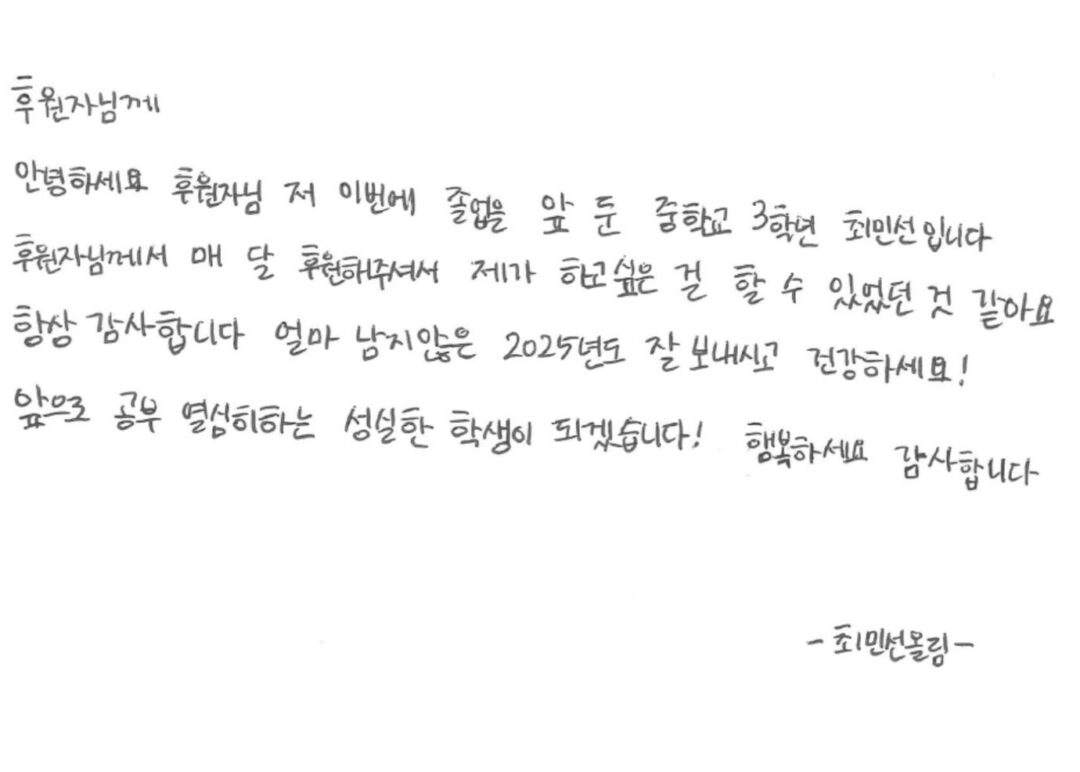 후원자님께
안녕하세요 후원자님 저 이번에 졸업을 앞 둔 중학교 3학년 최민선입니다
후원자님께서 매 달 후원해주셔서 제가 하고싶은 걸 할 수 있었던 것 같아요
항상 감사합니다 얼마 남지않은 2025년도 잘 보내시고 건강하세요!
앞으로 공부 열심히하는 성실한 학생이 되겠습니다! 행복하세요 감사합니다
-최민선올림-